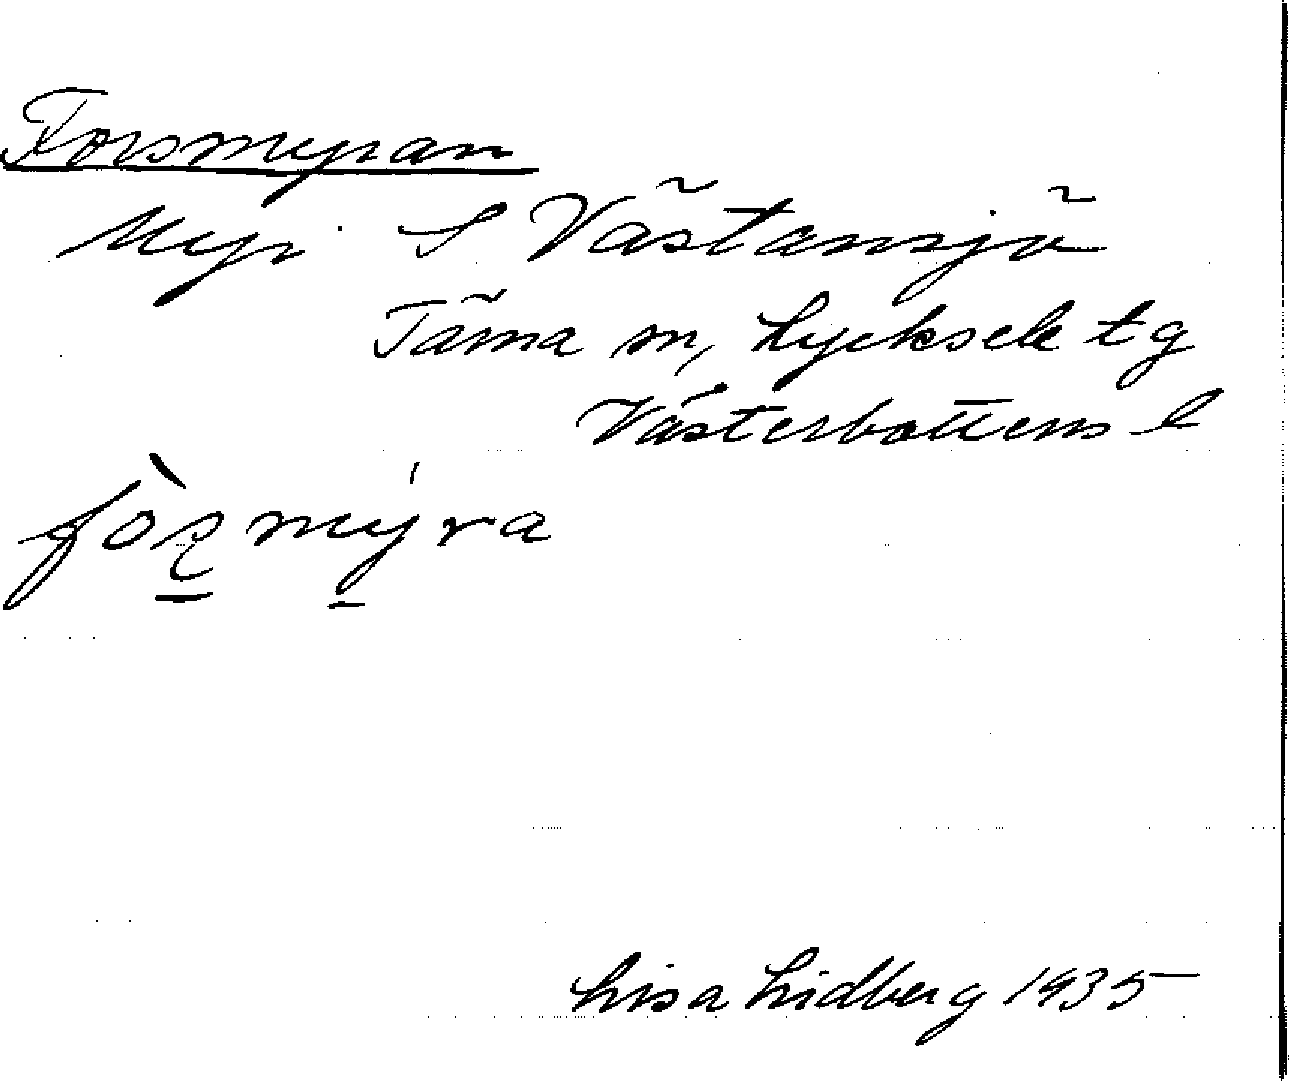 Forsmyran
Myr. S Västansjö
Tärna sn, Lycksele tg
Västerbottens l
Lisa Lidberg 1935